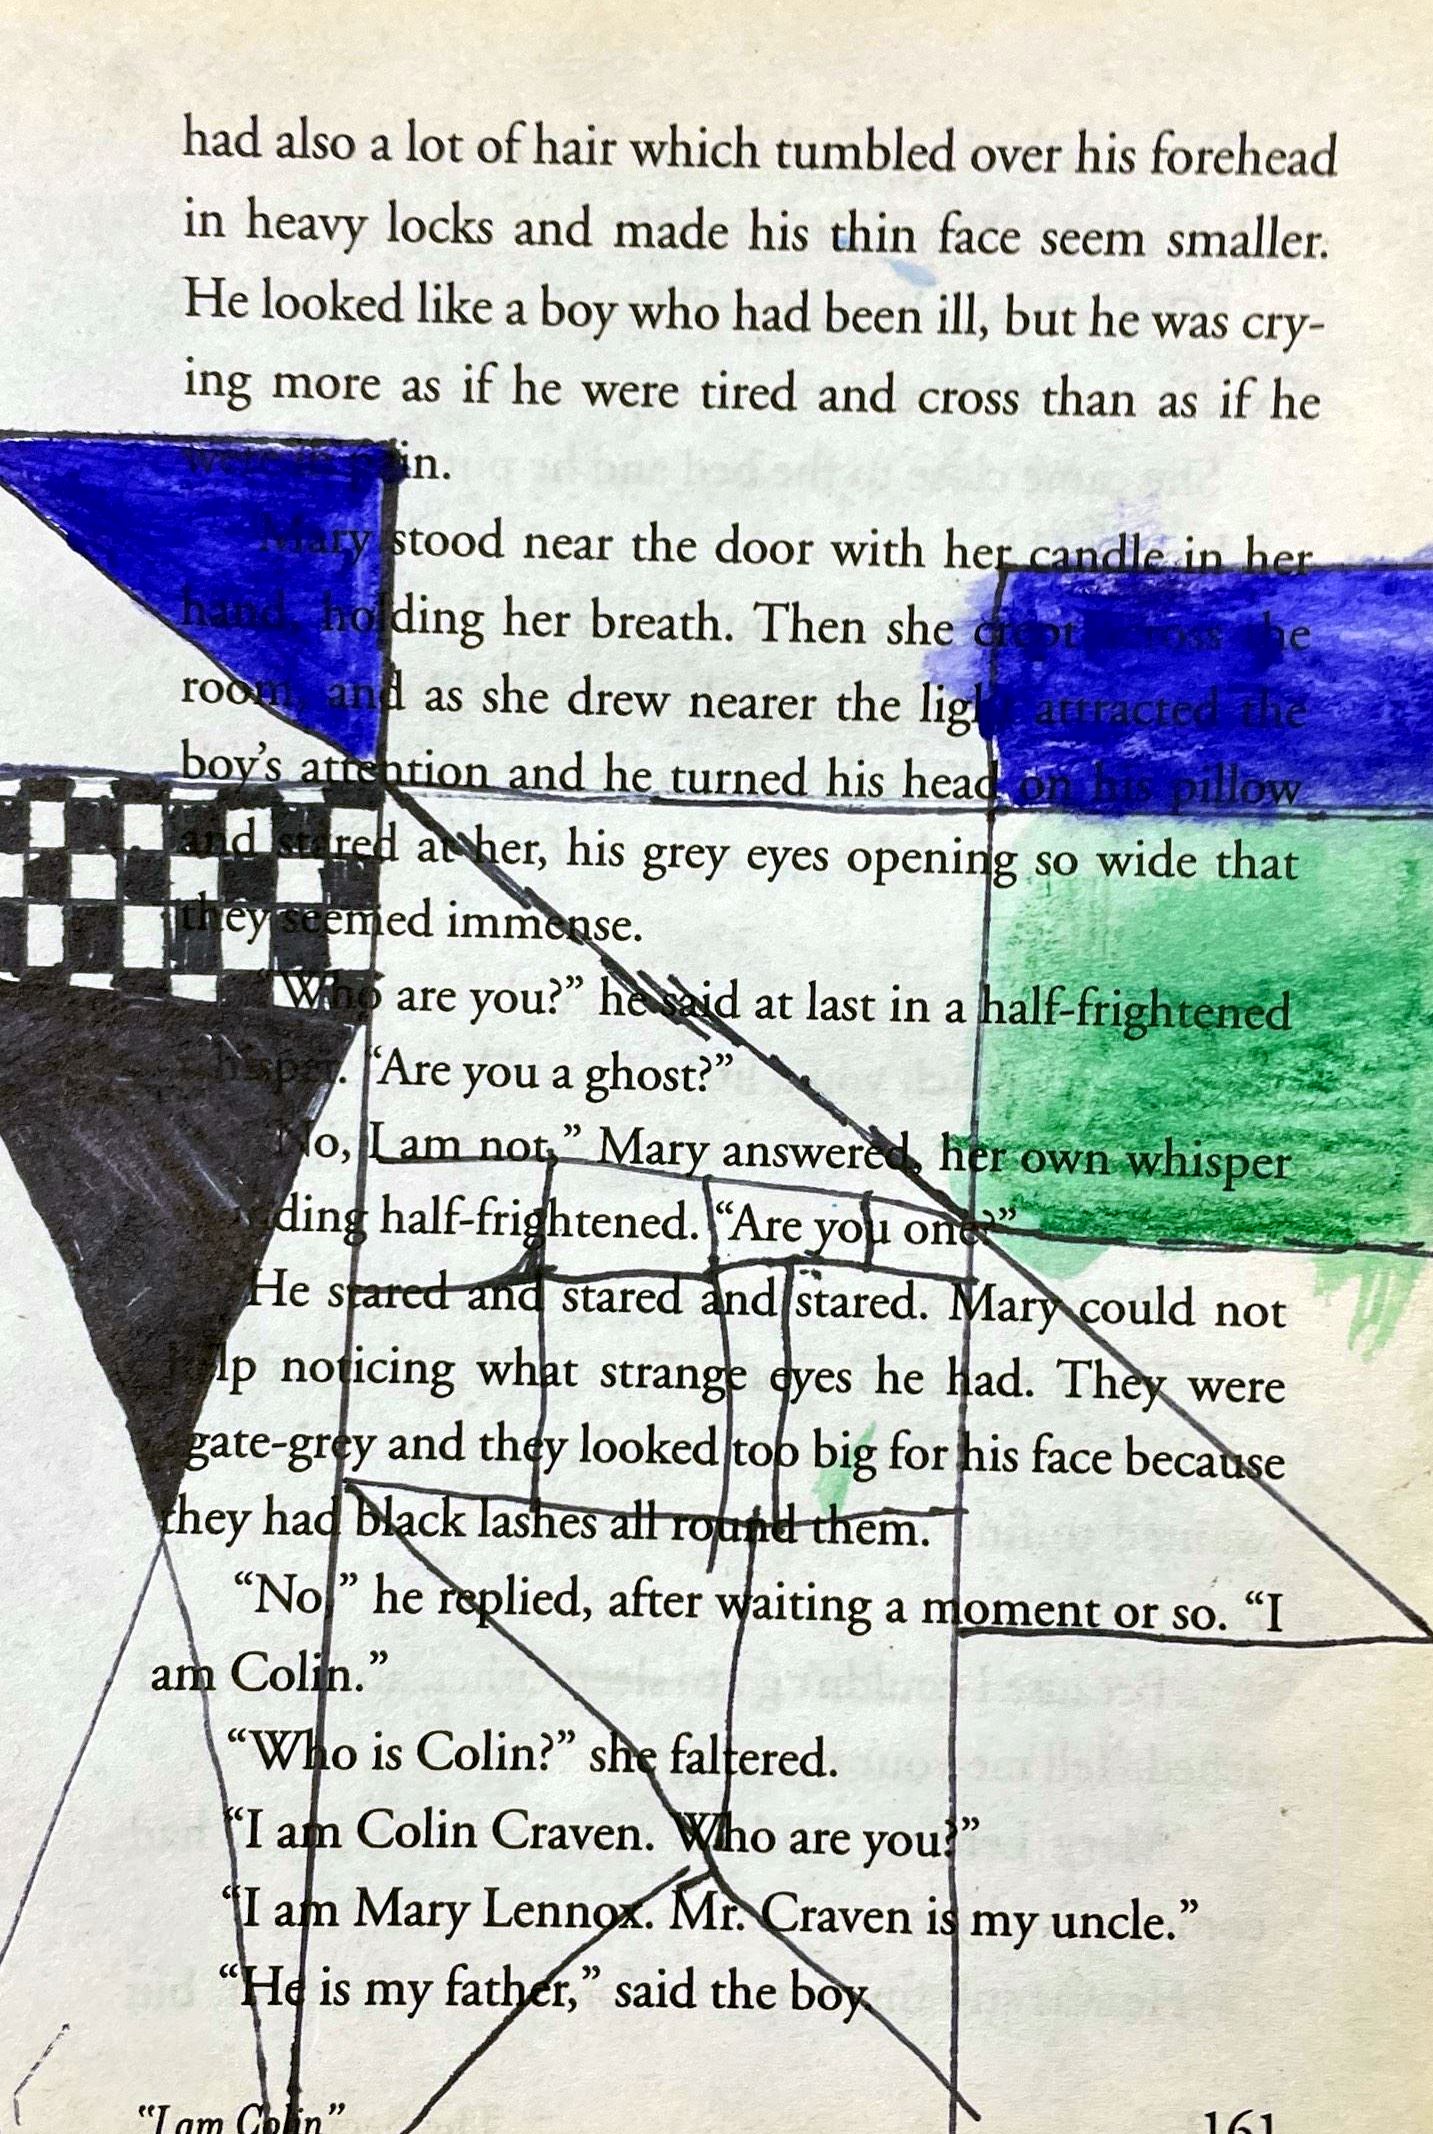 had also a lot of hair which tumbled over his forehead
in heavy locks and made his thin face seem smaller.
He looked like a boy who had been ill, but he was cry-
ing more as if he were tired and cross than as if he
were in pain.
Mary stood near the door with her candle in her
hand, holding her breath. Then she crept across the
room, and as she drew nearer the light attracted the
boy's attention and he turned his head on his pillow
and stared at her, his grey eyes opening so wide that
they seemed immense.
"Who are you?" he said at last in a half-frightened
whisper. "Are you a ghost?"
"No, I am not," Mary answered, her own whisper
ding half-frightened. "Are you one?"
He stared and stared and stared. Mary could not
help noticing what strange eyes he had. They were
gate-grey and they looked too big for his face because
they had black lashes all round them.
"No," he replied, after waiting a moment or so. "I
am Colin."
"Who is Colin?" she faltered.
"I am Colin Craven. Who are you?"
"I am Mary Lennox. Mr. Craven is my uncle."
"He is my father," said the boy.
"I am Colin"
161